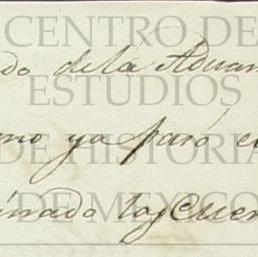 CENTRO DE
do dela Aduan
ESTUDIOS
mo ya paró e
DE HISTORIA
inado las Cuen
DE MEXICO